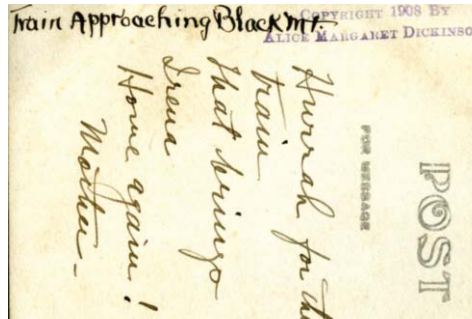 Train Approaching Black Mt.
COPYRIGHT 1908 BY
ALICE MARGARET DICKINSO
POST
FOR MESSAGE
Hurrah for the
train
that brings
Irena
Home again!
Mother -